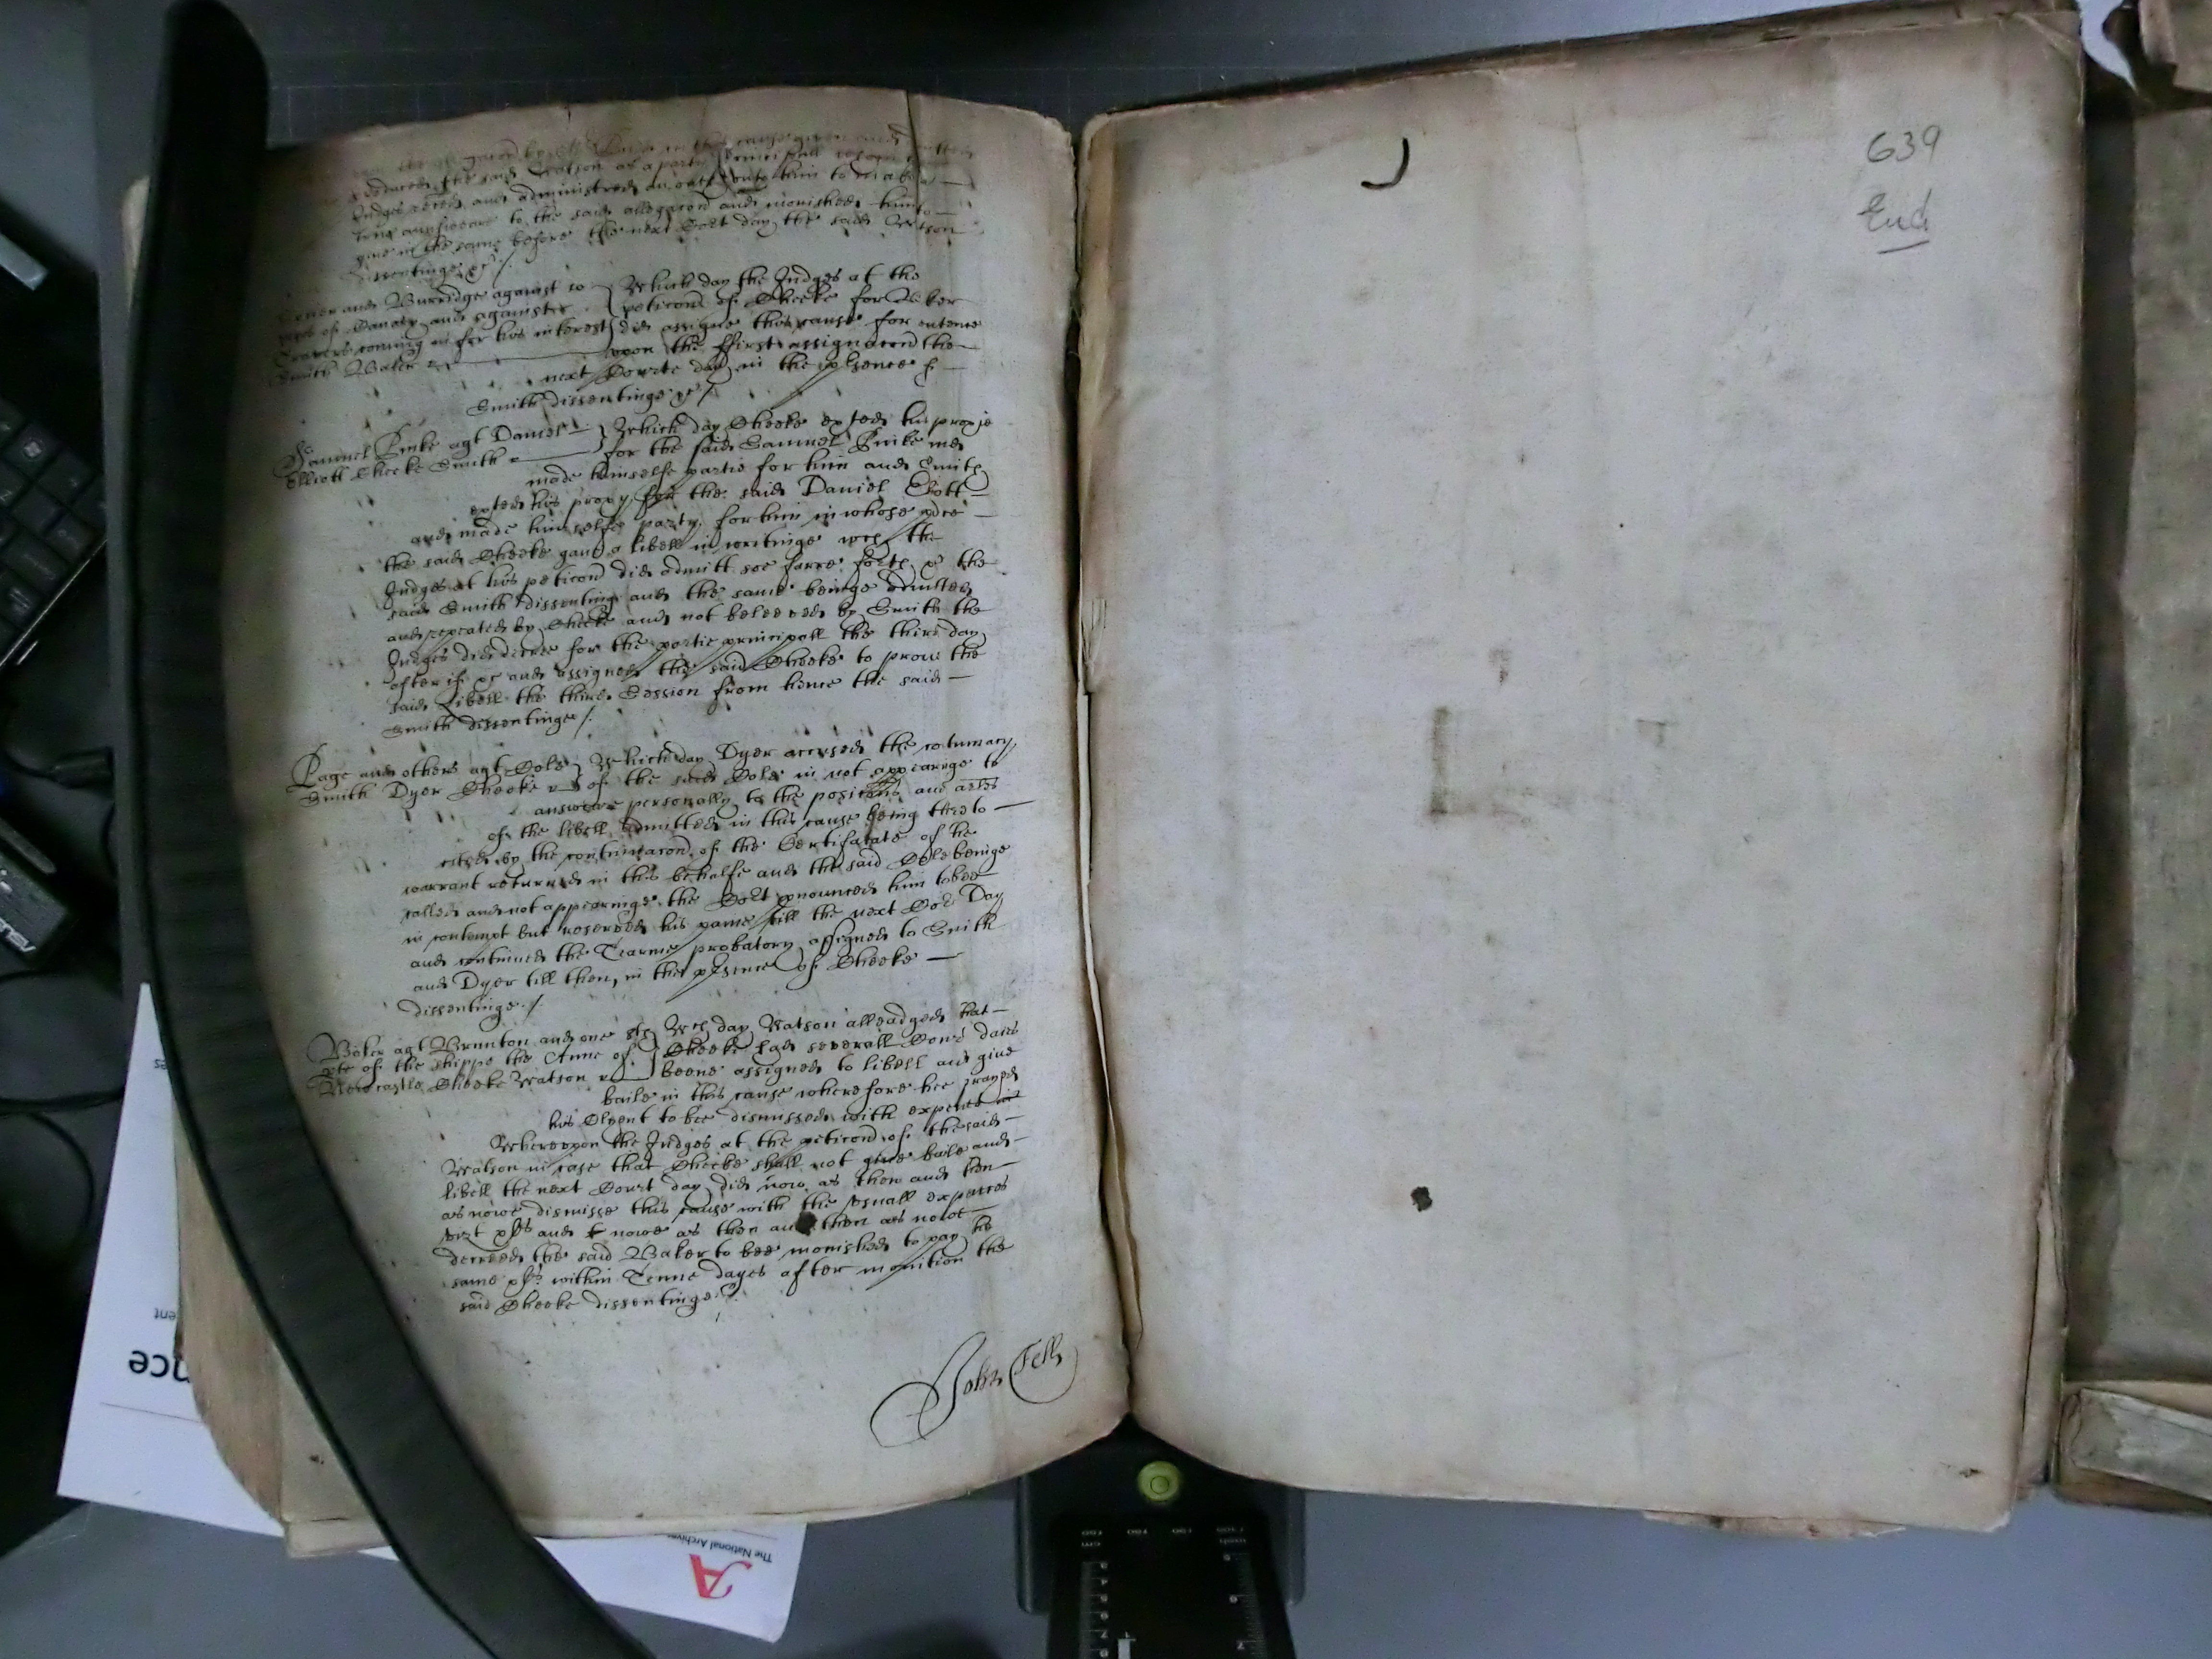 produced the said Watson as a partie principall whom
Judges received and administred an oath unto him to make a
true answeare to the said allegacon and monished him to
give in the same before the next Cort day the said Watson
dissentinge &c /.
and Burridge against
and against
coming in for his interest
Smith Baker
Which day the Judges at the
peticon of Cheeke for Baker
did assigne this cause for sentence
upon the ffirst assignacon the
next Courte day in the pnce of
Smith dissentinge &c /
Samuel Pinke agt Daniel
Elliott Cheeke Smith
Which day Cheeke exted his proxie
for the said Samuel Pinke and
made himselfe partie for him and Smith
exted his proxy for the said Daniel Eliott
and made himselfe party for him in whose pnce
the said Cheeke gave a libell in writinge wch the
Judges at his peticon did admitt soe farre forth &c the
said Smith dissenting and the same beinge admitted
and repeated by Cheeke and not beleeved by Smith the
Judges did decree for the partie principall the third day
after if &c and assigned the said Cheeke to prove the
said libell the third Session from hence the said
Smith dissentinge /.
Page and others agt Cole
Smith Dyer Cheeke
Which day Dyer accused the cotumacy
of the said Cole in not appearinge to
answere personally to the posicons and arles
of the libell admitted in this cause being thereto
cited by the continuacon of the Certificate of the
warrant returned in this behalfe and the said Cole beinge
called and not appearinge the Cort pnounced him to bee
in contempt but reserved his paine till the next Cort Day
and continued the Tearme probatory assigned to Smith
and Dyer till then, in the psence of Cheeke
dissentinge /.
Baker agt Brunton and one
pte of the shippe the Anne of
Newcastle Cheeke Watson
Wch day Watson alleadged that
Cheeke had severall Court daies
beene assigned to libell and give
baile in this cause wherefore hee prayed
his Clyent to bee dismissed with expences
Whereupon the Judges at the peticon of the said
Watson in case that Cheeke shall not give baile and
libell the next Court day did now as then and then
as nowe dismisse this cause with the usuall expences
vizt xls and nowe as then and then as nowe
decreed the said Baker to bee monished to pay the
same xls within Tenne dayes after monition the
said Cheeke dissentinge /.
John Fell
639
End